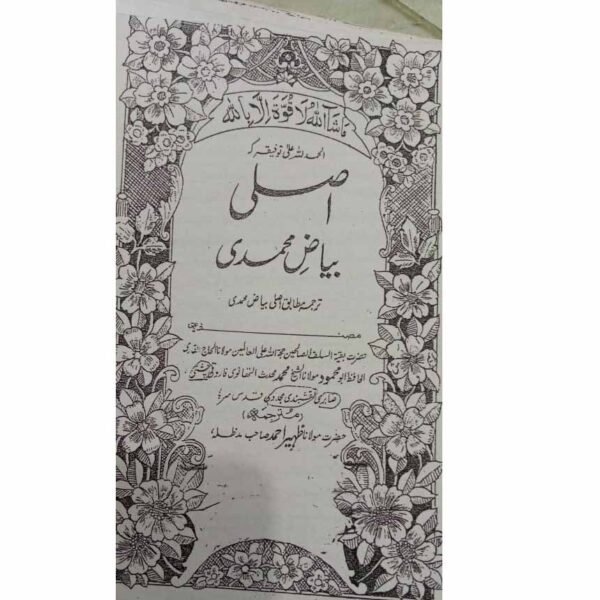 ماشاء اللہ لا قوۃ الا باللہ
الحمد للہ علی توفیقہ کہ
اصلی
بیاضِ محمدی
ترجمہ مطابق اصلی بیاض محمدی
مصنف
حضرت بقیۃ السلف الصالحین حجۃ اللہ علی العالمین مولانا الحاج القاری
الحافظ ابو محمود مولانا الشیخ محمد محدث التھانوی فاروقی چشتی
صابری نقشبندی مجددی قدس سرہٗ
(مترجمہ)
حضرت مولانا ظہیر احمد صاحب مدظلہٗ